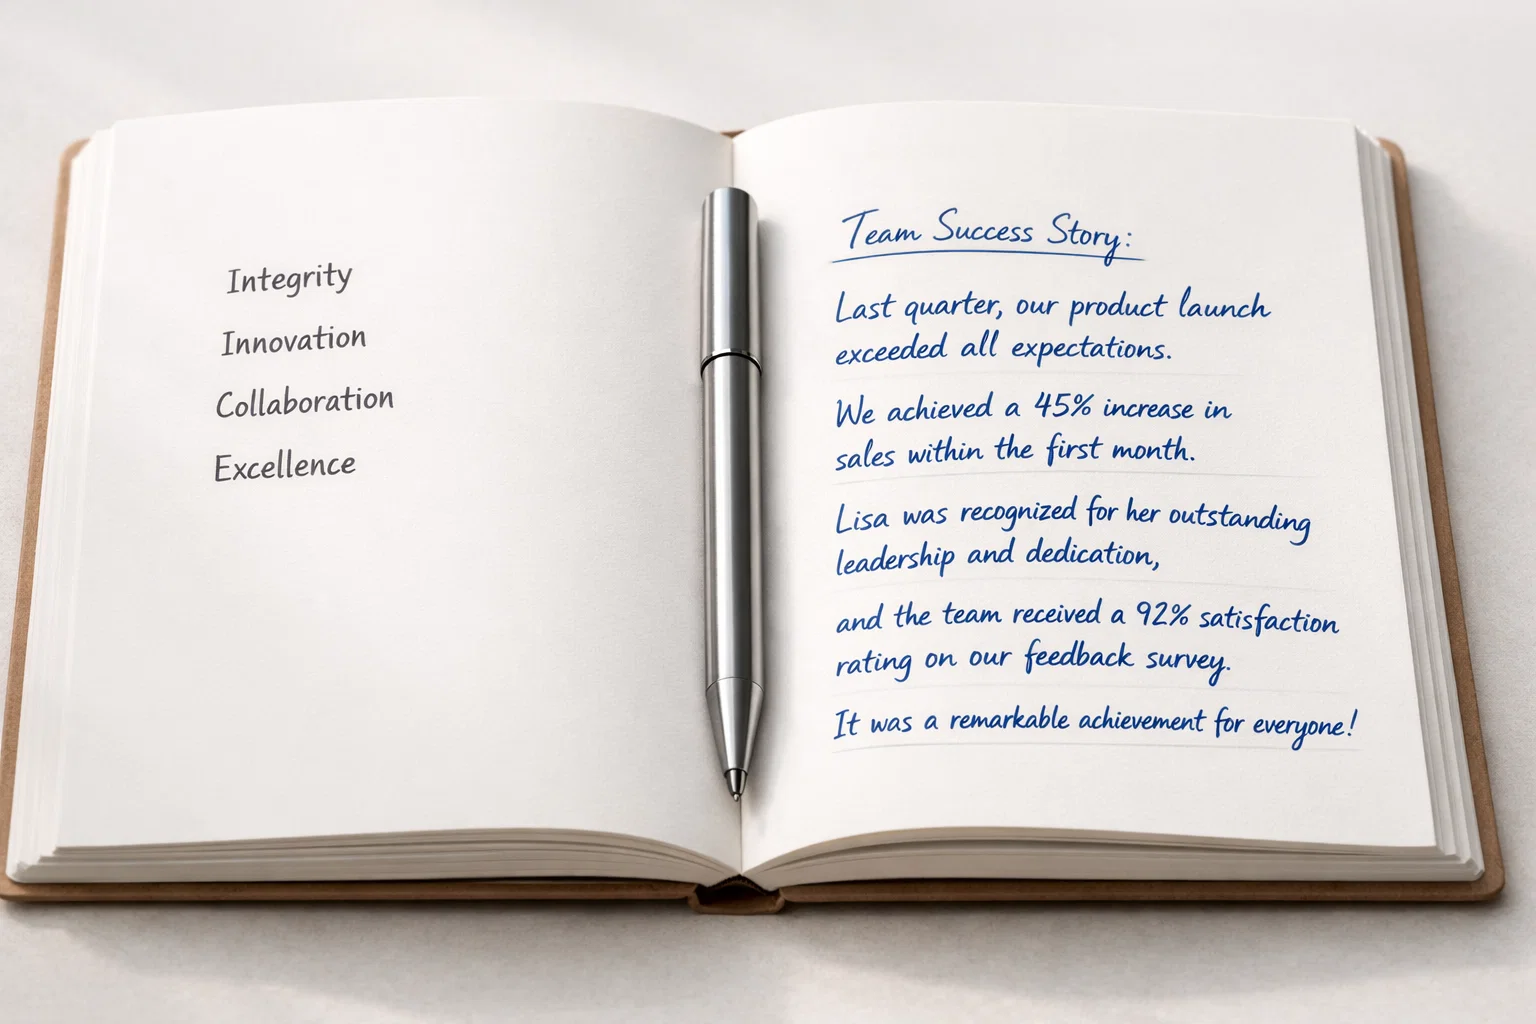 Integrity
Innovation
Collaboration
Excellence
Team Success Story:
Last quarter, our product launch
exceeded all expectations.
We achieved a 45% increase in
sales within the first month.
Lisa was recognized for her outstanding
leadership and dedication,
and the team received a 92% satisfaction
rating on our feedback survey.
It was a remarkable achievement for everyone!